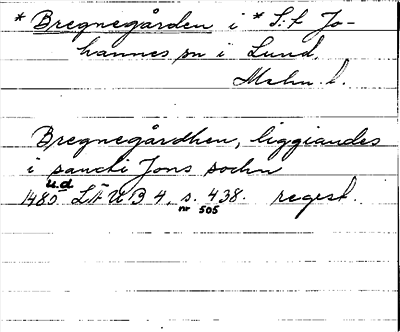 * Bregnegården i * S:t Jo-
hannes sn i Lund.
Mslm. l.
Bregnegårdhen, liggiandes
i sancti Jons sochn
u.d.
1485 LÄUB 4, s. 438. regest.
nr 505